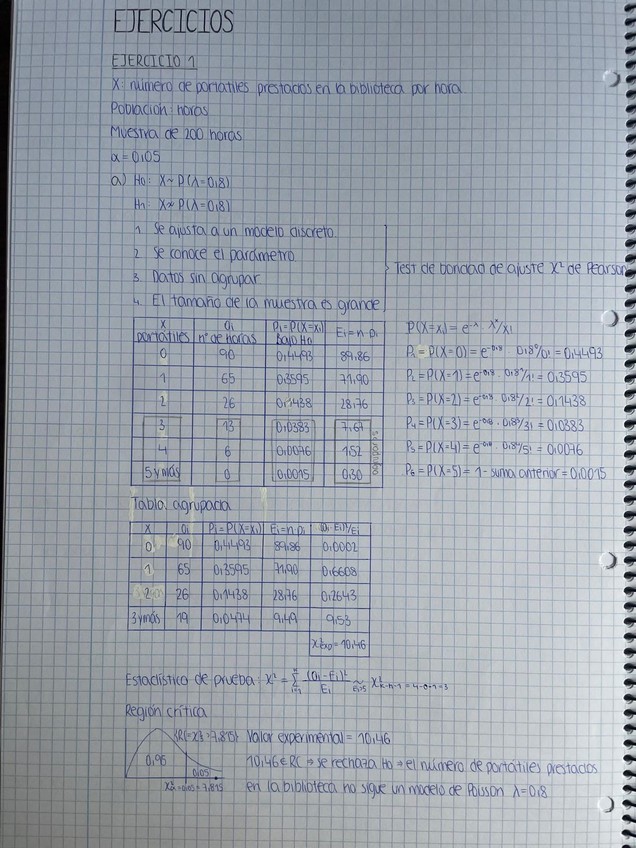 EJERCICIOS
EJERCICIO 1
X: número de portátiles prestados en la biblioteca por hora
Población: horas
Muestra de 200 horas
α = 0,05
a) H₀: X ~ P(λ=0,8)
H₁: X ≁ P(λ=0,8)
1. Se ajusta a un modelo discreto
2. Se conoce el parámetro
3. Datos sin agrupar
4. El tamaño de la muestra es grande
Test de bondad de ajuste X² de Pearson
X portátiles | Oi nº de horas | Pi=P(X=xi) Bajo H₀ | Ei=n·pi
0 | 90 | 0,4493 | 89,86
1 | 65 | 0,3595 | 71,90
2 | 26 | 0,1438 | 28,76
3 | 13 | 0,0383 | 7,67
4 | 6 | 0,0076 | 1,52
5 y más | 0 | 0,0015 | 0,30
P(X=xi) = e^-λ · λ^x/x!
P₁ = P(X=0) = e^-0,8 · 0,8⁰/0! = 0,4493
P₂ = P(X=1) = e^-0,8 · 0,8¹/1! = 0,3595
P₃ = P(X=2) = e^-0,8 · 0,8²/2! = 0,1438
P₄ = P(X=3) = e^-0,8 · 0,8³/3! = 0,0383
P₅ = P(X=4) = e^-0,8 · 0,8⁴/5! = 0,0076
P₆ = P(X=5) = 1 - suma anterior = 0,0015
Tabla agrupada
X | Oi | Pi=P(X=xi) | Ei=n·pi | (Oi-Ei)²/Ei
0 | 90 | 0,4493 | 89,86 | 0,0002
1 | 65 | 0,3595 | 71,90 | 0,6608
2 | 26 | 0,1438 | 28,76 | 0,2643
3 y más | 19 | 0,0474 | 9,49 | 9,53
X²exp = 10,46
Estadístico de prueba: X² = Σ (Oi-Ei)²/Ei ~ Ei≥5 X²k-h-1=4-0-1=3
Región crítica
{RC=X²≥7,815} Valor experimental = 10,46
0,95
0,05
10,46 ∈ RC → se rechaza H₀ → el número de portátiles prestados
X²3;α=0,05 = 7,815
en la biblioteca no sigue un modelo de Poisson λ=0,8